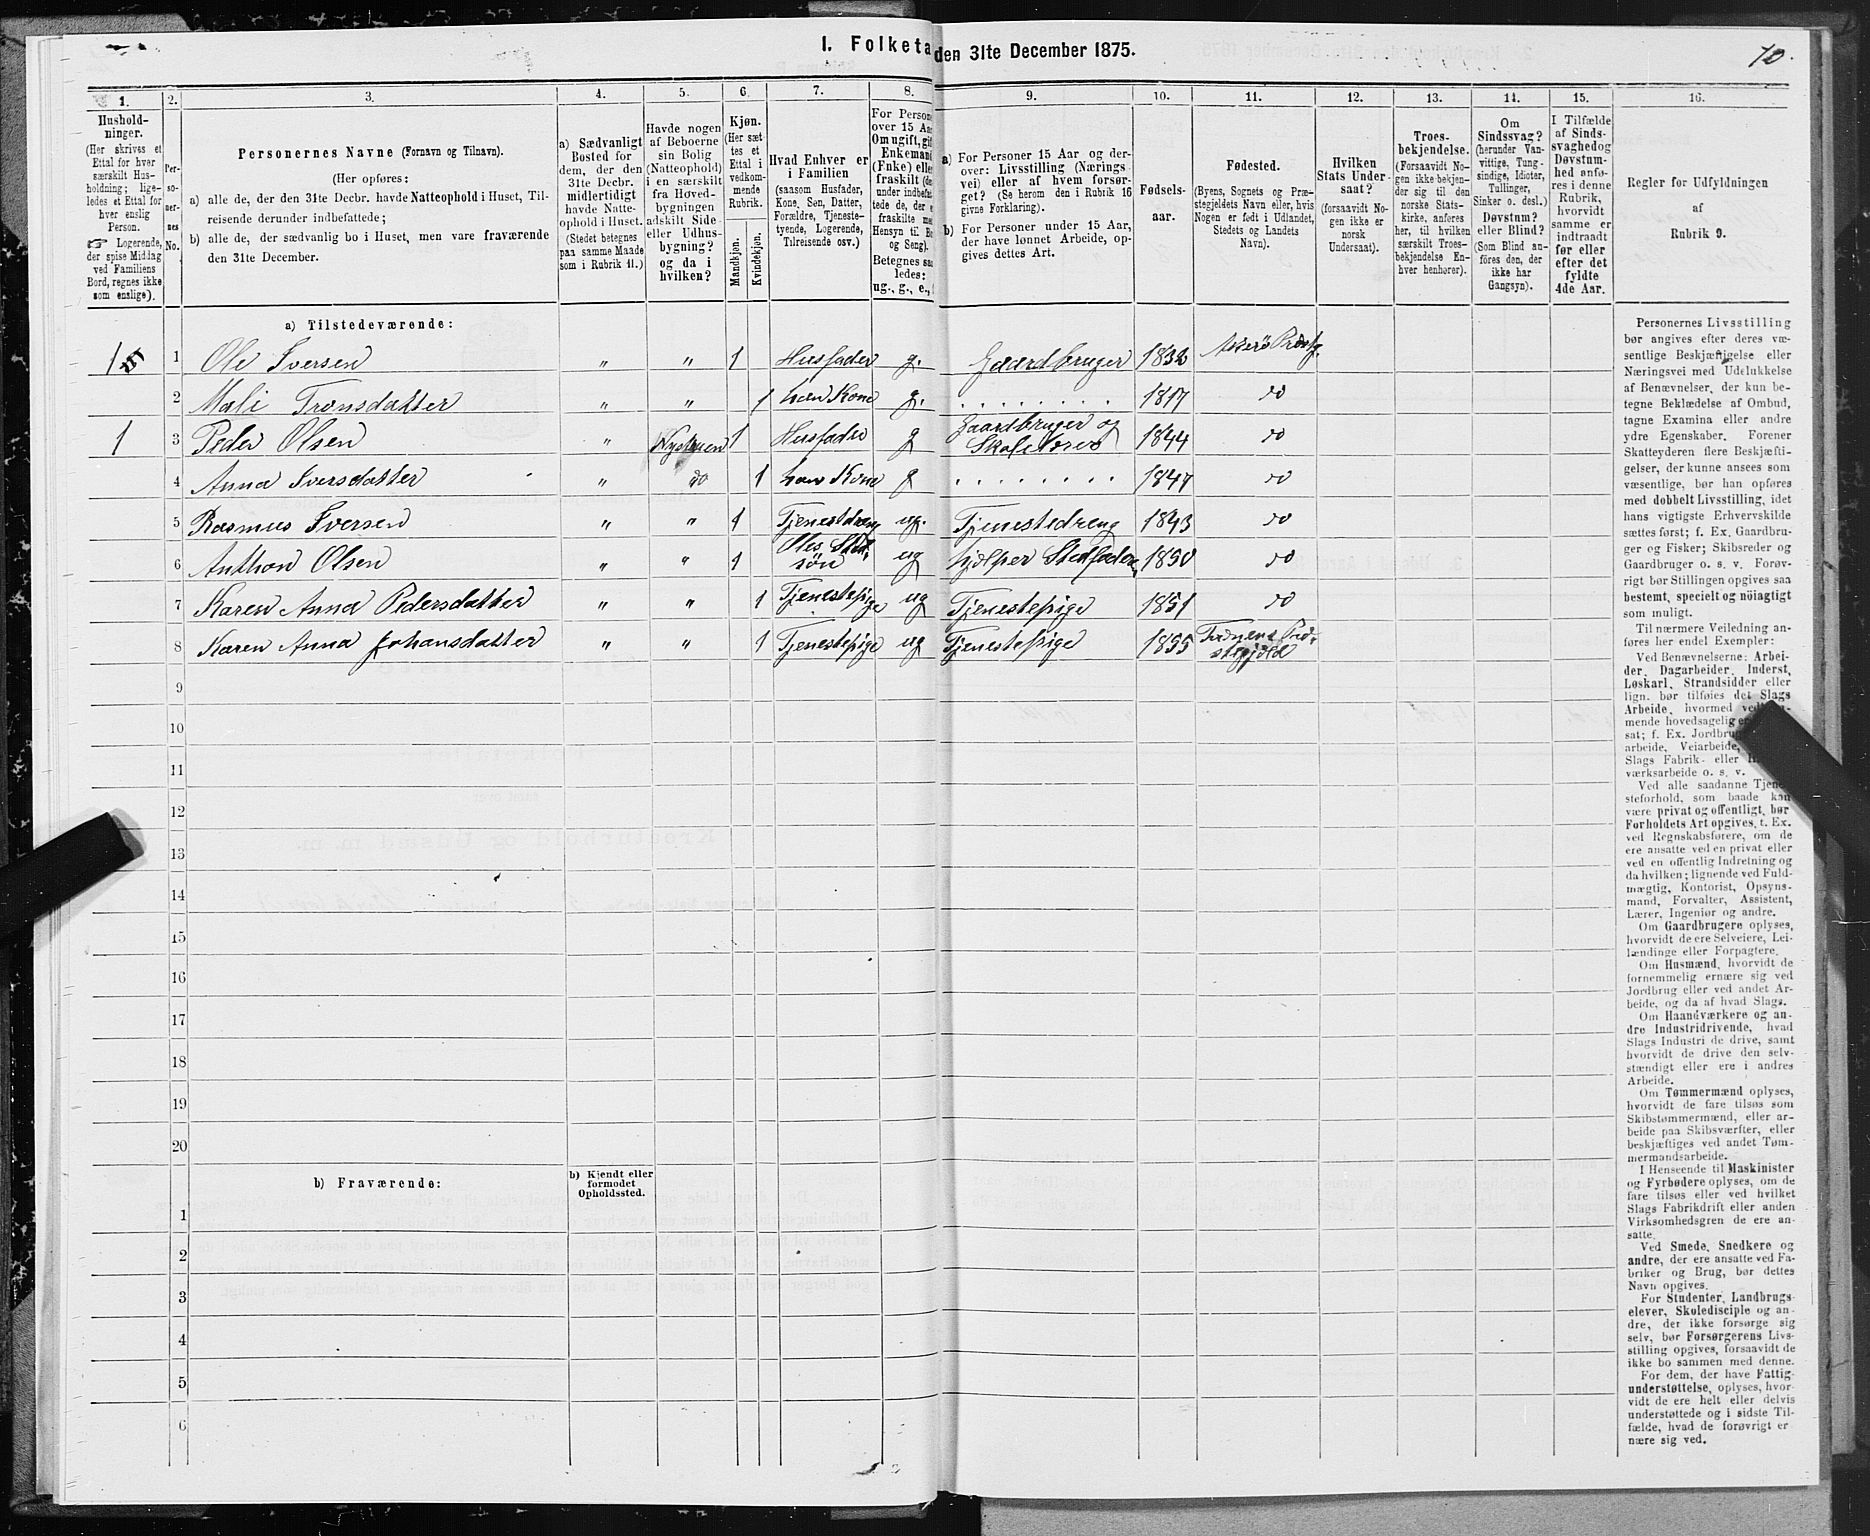 10.
I. Folketa den 31te December 1875.
1. 2. 3. 4. 5. 6. 7. 8. 9. 10. 11. 12. 13. 14. 15. 16.
Hushold-
ninger.
(Her skrives et
Ettal for hver
særskilt Hus-
holdning; lige-
ledes et Ettal for
hver enslig
Person.
☞ Logerende,
der spise Middag
ved Familiens
Bord, regnes ikke
som enslige).
Per-
so-
ner-
nes
No.
Personernes Navne (Fornavn og Tilnavn).
(Her opføres:
a) alle de, der den 31te Decbr. havde Natteophold i Huset, Til-
reisende derunder indbefattede;
b) alle de, der sædvanlig bo i Huset, men vare fraværende
den 31te December.
a) Sædvanligt
Bosted for
dem, der den
31te Decbr.
midlertidigt
havde Natte-
ophold i Huset.
(Stedet betegnes
paa samme Maade
som i Rubrik 11.)
Havde nogen
af Beboerne
sin Bolig
(Natteophold)
i en særskilt
fra Hoved-
bygningen
adskilt Side-
eller Udhus-
bygning?
og da i
hvilken?
Kjøn.
(Her sæt-
tes et
Ettal i
vedkom-
mende
Rubrik.
Mandkjøn.
Kvindekjøn.
Hvad Enhver er
i Familien
(saasom Husfader,
Kone, Søn, Datter,
Forældre, Tjeneste-
tyende, Logerende,
Tilreisende osv.)
For Persone
over 15 Aa
Om ugift, gif
Enkemand
(Enke) elle
fraskilt (de
under indbefat
tede de, der e
fraskilte me
Hensyn til Bo
og Seng).
Betegnes saa
ledes:
ug., g., e.,
a) For Personer 15 Aar og der-
over: Livsstilling (Nærings
vei) eller af hvem forsør-
get? (Se herom den i Rubrik 16
givne Forklaring).
b) For Personer under 15 Aar,
der have lønnet Arbeide, op-
gives dettes Art.
Fødsels-
aar.
Fødested.
(Byens, Sognets og Præ-
stegjeldets Navn eller, hvis
Nogen er født i Udlandet,
Stedets og Landets
Navn).
Hvilken
Stats Under-
saat?
(forsaavidt No-
gen ikke er
norsk
Undersaat).
Troes-
bekjendelse.
(Forsaavidt No-
gen ikke bekjen-
der sig til den
norske Stats-
kirke, anføres
her, til hvilken
særskilt Troes-
bekjendelse En-
hver henhører).
Om
Sindssvag?
(herunder Van-
vittige, Tung-
sindige, Idioter,
Tullinger,
Sinker o. desl.)
Døvstum?
eller Blind?
(Som Blind an-
føres den, der
ikke har
Gangsyn).
I Tilfælde
af Sinds-
svaghed og
Døvstum-
hed anfø-
res i denne
Rubrik,
hvorvidt
samme er
indtraadt
før eller
efter det
fyldte
4de Aar.
Regler for Udfyldningen
af
Rubrik 9.
a) Tilstedeværende:
1 1 Ole Iversen " " 1 Husfader g. Gaardbruger 1832
2 Mali Tronsdatter " " 1 hans Kone g. . . . . . . . . 1817 do
1 3 Peder Olsen " Nystuen 1 Husfader g Gaardbruger og
Skolelærer 1844 do
4 Anna Iversdatter " do 1 hans Kone g . . . . . . . . 1847 do
5 Rasmus Iversen " " 1 Tjenestdreng ug. Tjenestedreng 1843 do
6 Anthon Olsen " " 1 Oles Sted-
søn ug hjelper Stedfaderen 1850 do
7 Karen Anna Pedersdatter " " 1 Tjenestepige ug Tjenestepige 1851 do
8 Karen Anna Johansdatter " " 1 Tjenestepige ug Tjenestepige 1855
9
10
11
12
13
14
15
16
17
18
19
20
b) Fraværende:
b) Kjendt eller
formodet
Opholdssted.
1
2
3
4
5
6
Personernes Livsstilling
bør angives efter deres væ-
sentlige Beskjæftigelse eller
Næringsvei med Udelukkelse
af Benævnelser, der kun be-
tegne Beklædelse af Ombud,
tagne Examina eller andre
ydre Egenskaber. Forener
Skatteyderen flere Beskjæfti-
gelser, der kunne ansees som
væsentlige, bør han opføres
med dobbelt Livsstilling, idet
hans vigtigste Erhvervskilde
sættes først; f. Ex. Gaardbru-
ger og Fisker; Skibsreder og
Gaardbruger o. s. v. Forøv-
rigt bør Stillingen opgives saa
bestemt, specielt og nöiagtigt
som muligt.
Til nærmere Veiledning an-
føres her endel Exempler:
Ved Benævnelserne: Arbei-
der, Dagarbeider, Inderst,
Løskarl, Strandsidder eller
lign. bør tilføies det Slags
Arbeide, hvormed ved
mende hovedsagelig er
sat; f. Ex. Jordbru
arbeide, Veiarbeide,
Slags Fabrik- eller
værksarbeide o. s. v.
Ved alle saadanne Tjene
steforhold, som baade kan
være privat og offentligt, bør
Forholdets Art opgives, t. Ex.
ved Regnskabsførere, om de
ere ansatte ved en privat eller
ved en offentlig Indretning og
da hvilken; lignende ved Fuld-
mægtig, Kontorist, Opsyns-
mand, Forvalter, Assistent,
Lærer, Ingeniør og andre.
Om Gaardbrugere oplyses,
hvorvidt de ere Selveiere, Lei-
lændinge eller Forpagtere.
Om Husmænd, hvorvidt de
fornemmelig ernære sig ved
Jordbrug eller ved andet Ar-
beide, og da af hvad Slags.
Om Haandværkere og an-
dre Industridrivende, hvad
Slags Industri de drive, samt
hvorvidt de drive den selv-
stændigt eller ere i andres
Arbeide.
Om Tømmermænd oplyses,
hvorvidt de fare tilsøs som
Skibstømmermænd, eller ar-
beide paa Skibsværfter, eller
beskjæftiges ved andet Tøm-
mermandsarbeide.
I Henseende til Maskinister
og Fyrbødere oplyses, om de
fare tilsøs eller ved hvilket
Slags Fabrikdrift eller anden
Virksomhedsgren de ere an-
satte.
Ved Smede, Snedkere og
andre, der ere ansatte ved Fa-
briker og Brug, bør dettes
Navn opgives.
For Studenter, Landbrugs-
elever, Skoledisciple og an-
dre, der ikke forsørge sig
selv, bør Forsørgerens Livs-
stilling opgives, forsaavidt de
ikke bo sammen med denne.
For dem, der have Fattig-
understøttelse, oplyses, hvor-
vidt de ere helt eller delvis
understøttede og i sidste Til-
fælde, hvad de forøvrigt er-
nære sig ved.